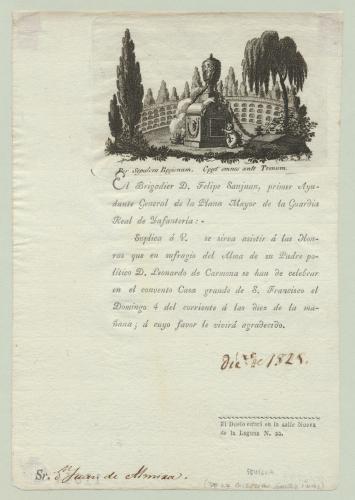 Sepulcra Regionum. Eget omne ante Tronum.
El Brigadier D. Felipe Sanjuan, primer Ayu-
dante General de la Plana Mayor de la Guardia
Real de Infanteria: -
Suplica á V. se sirva asistir á las Hon-
ras que en sufragio del Alma de su Padre po-
lítico D. Leonardo de Carmona se han de celebrar
en el convento Casa grande de S. Francisco el
Domingo 4 del corriente á las diez de la ma-
ñana; á cuyo favor le vivirá agradecido.
dic.re de 1825.
El Duelo estará en la calle Nueva
de la Laguna N. 22.
Sr. Dn Juan de
SEVILLA